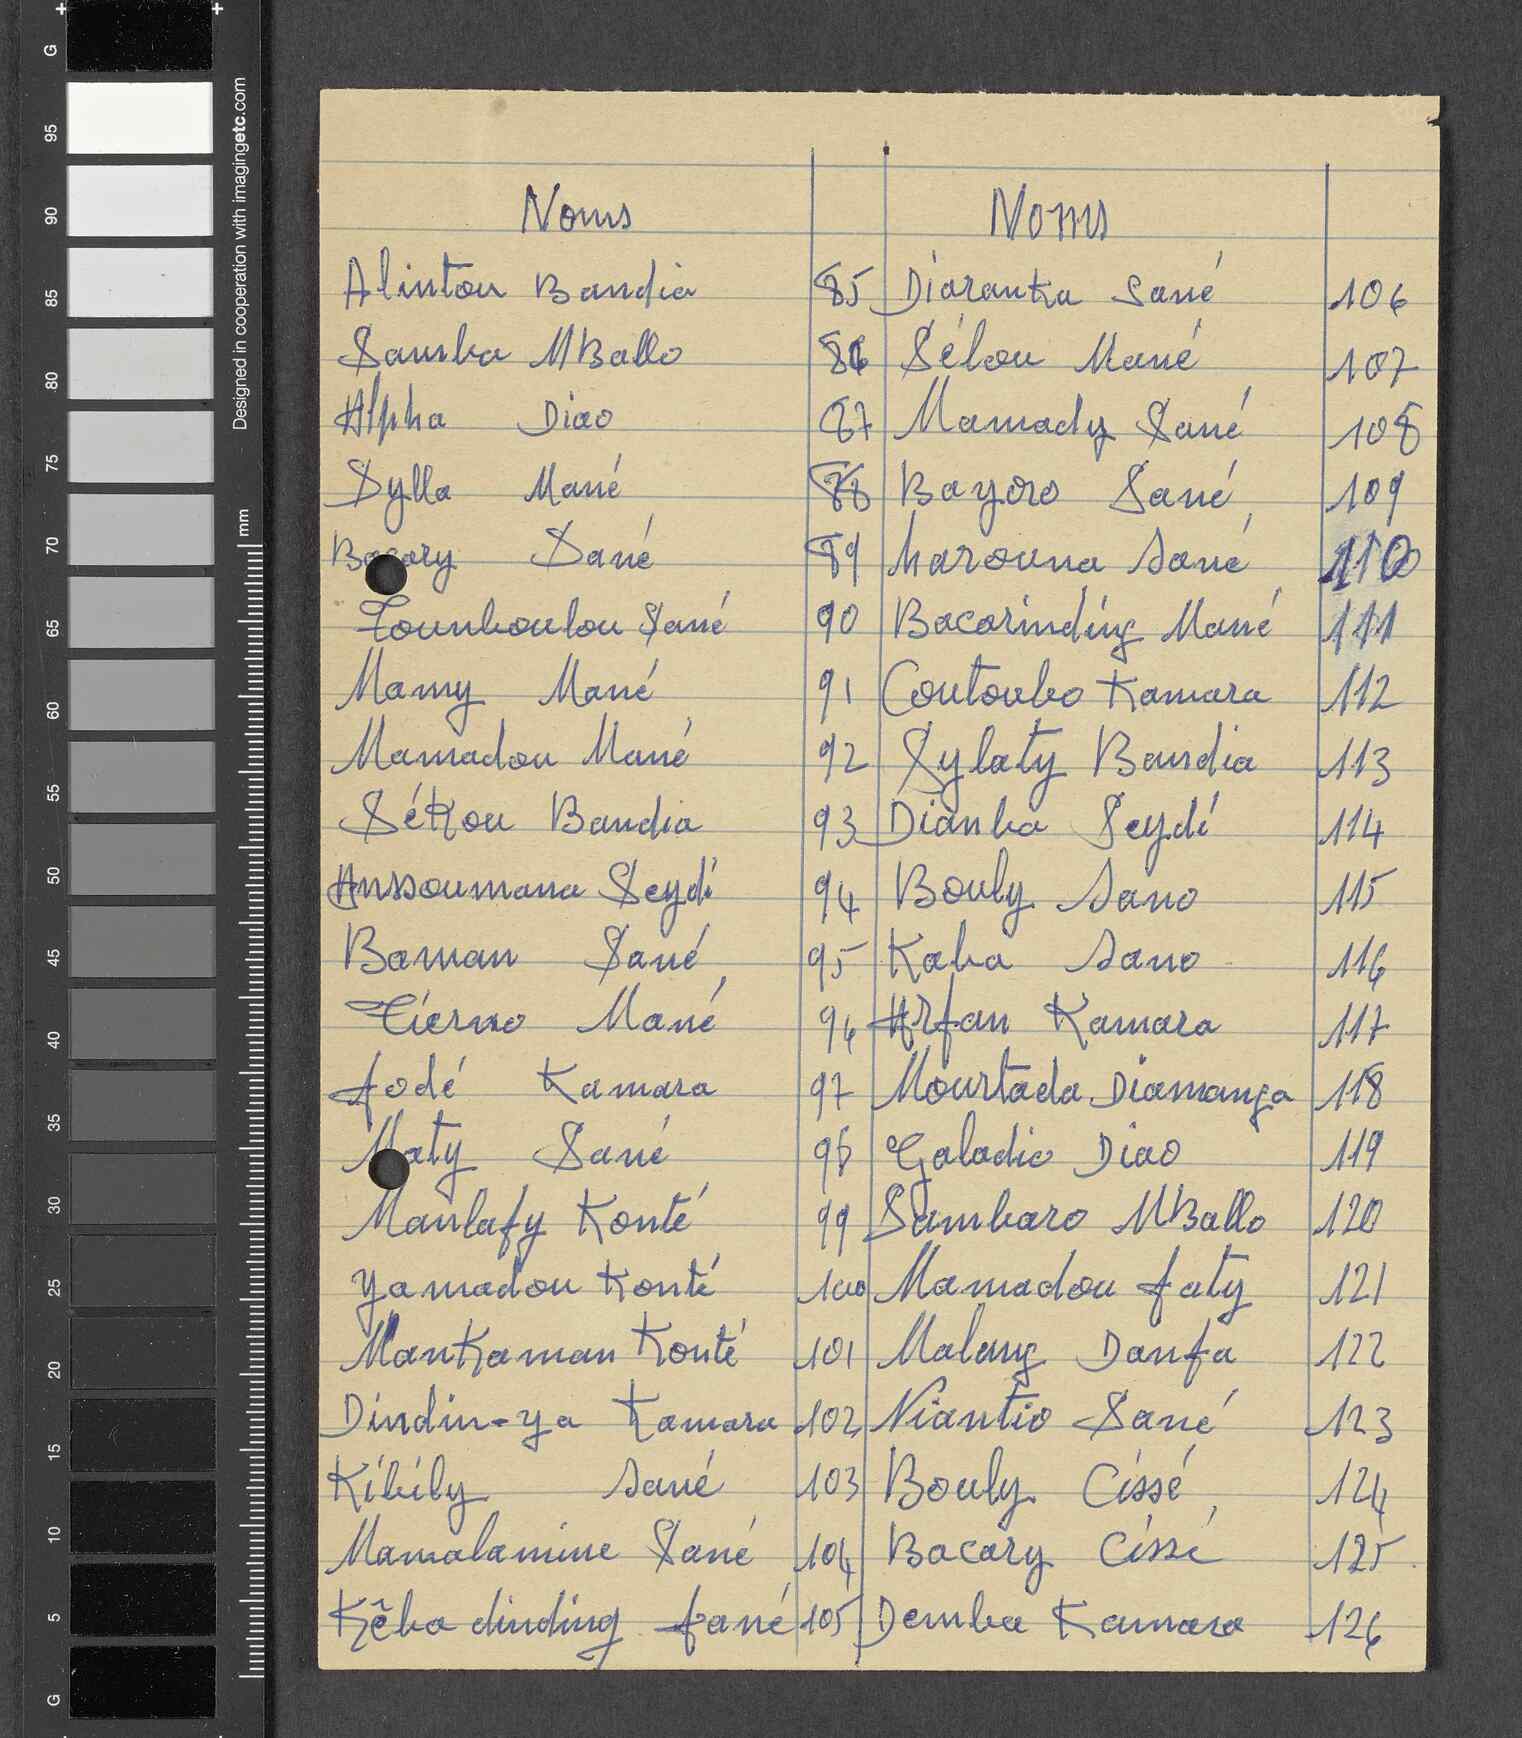 Noms Noms
Alintou Bandia 85 Diaranka Sané 106
Samba MBallo 86 Sélou Mané 107
Alpha Diao 87 Mamady Sané 108
Sylla Mané 88 Bayoro Sané 109
Bacary Sané 89 harouna Sané 110
Tounboulou Sané 90 Bacarinding Mané 111
Mamy Mané 91 Coutoubo Kamara 112
Mamadou Mané 92 Sylaty Bandia 113
Sékou Bandia 93 Dianba Seydi 114
Anssoumana Seydi 94 Bouly Sano 115
Baman Sané 95 Kaba Sano 116
Tierno Mané 96 Arfan Kamara 117
fodé Kamara 97 Mourtada Diamanga 118
Maty Sané 98 Galadio Diao 119
Manlafy Konté 99 Sambaro MBallo 120
Yamadou Konté 100 Mamadou faty 121
Mankaman Konté 101 Malang Danfa 122
Dindin-ya Kamara 102 Niantio Sané 123
Kibily Sané 103 Bouly Cissé 124
Mamalamine Sané 104 Bacary Cissé 125
Kêba dinding fané 105 Demba Kamara 126
G 95 90 85 80 75 70 65 60 55 50 45 40 35 30 25 20 15 10 5 G
Designed in cooperation with imagingetc.com
mm